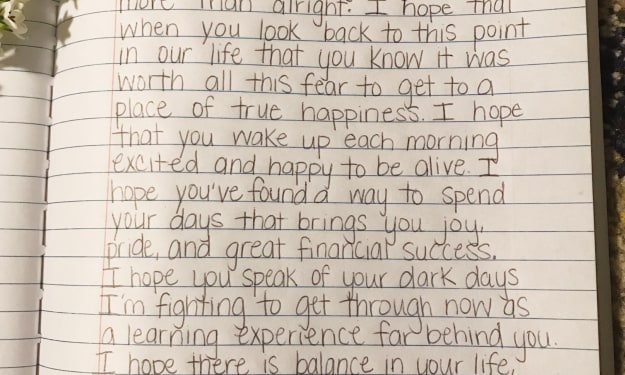 more than alright. I hope that
when you look back to this point
in our life that you know it was
worth all this fear to get to a
place of true happiness. I hope
that you wake up each morning
excited and happy to be alive. I
hope you've found a way to spend
your days that brings you joy,
pride, and great financial success.
I hope you speak of your dark days
I'm fighting to get through now as
a learning experience far behind you.
I hope there is balance in your life,